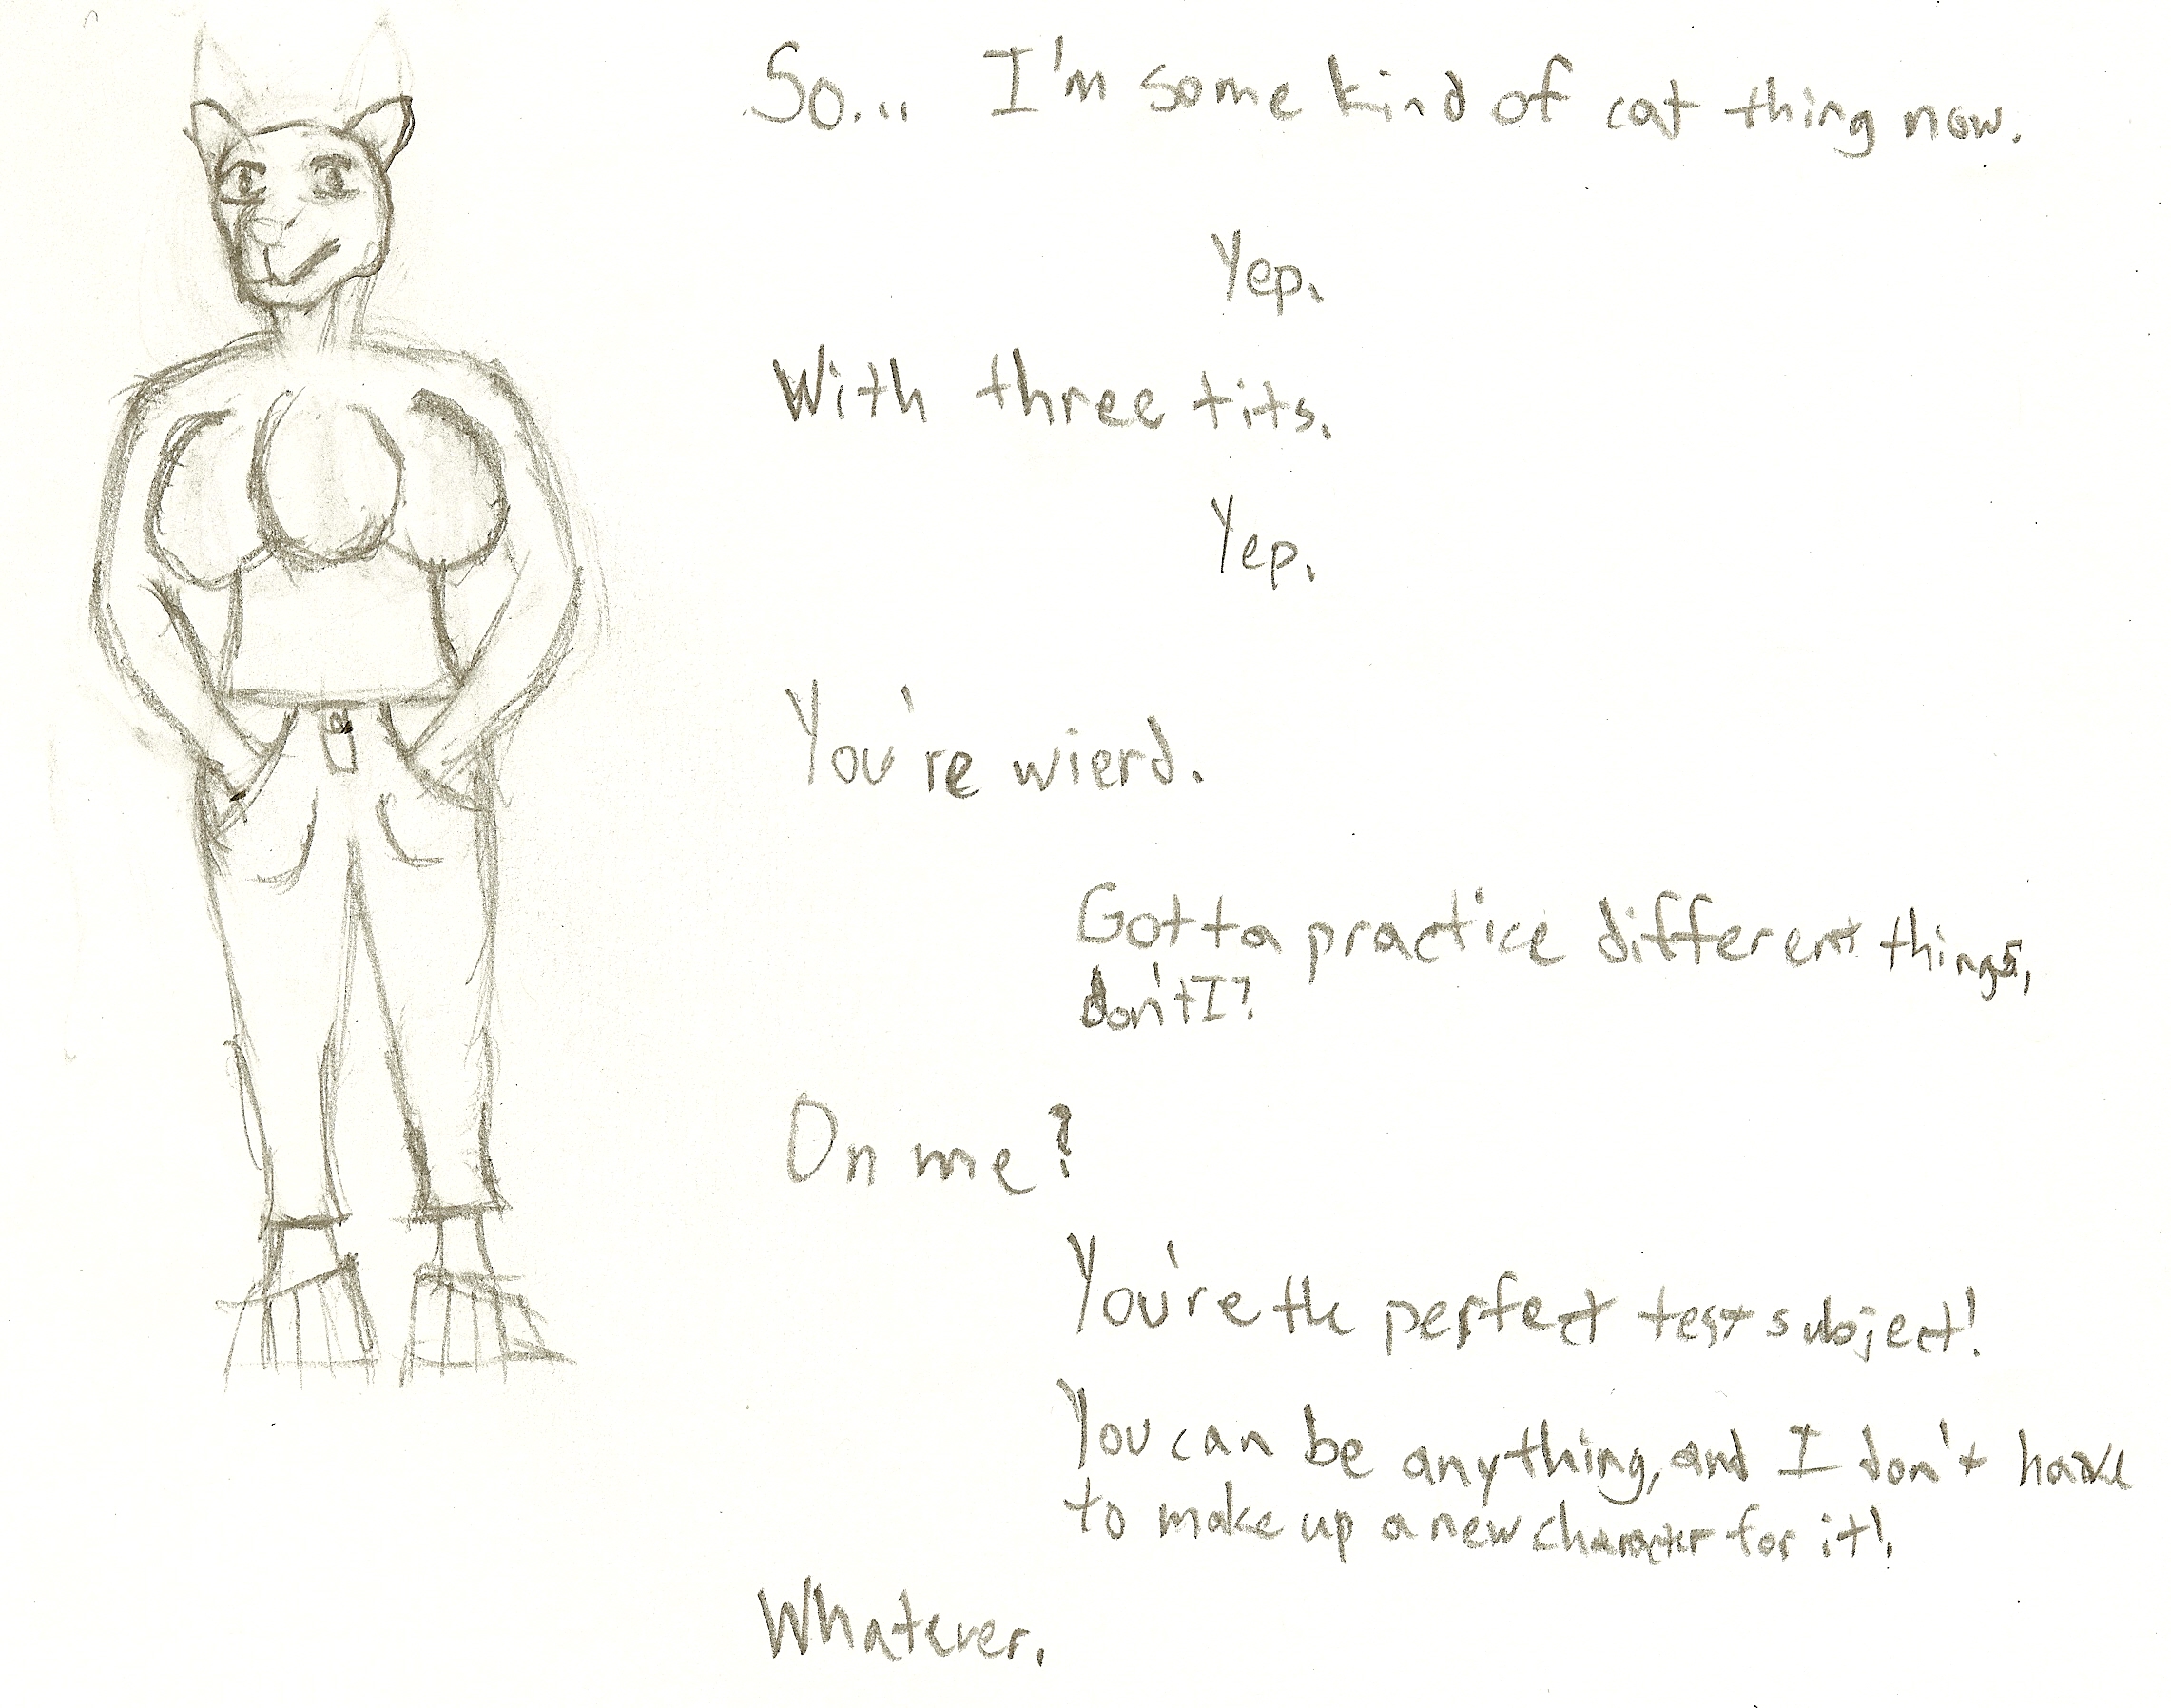 So... I'm some kind of cat thing now.
Yep.
With three tits.
Yep.
You're wierd.
Gotta practice different things,
don't I?
On me?
You're the perfect test subject!
You can be anything, and I don't have
to make up a new character for it!
Whatever.